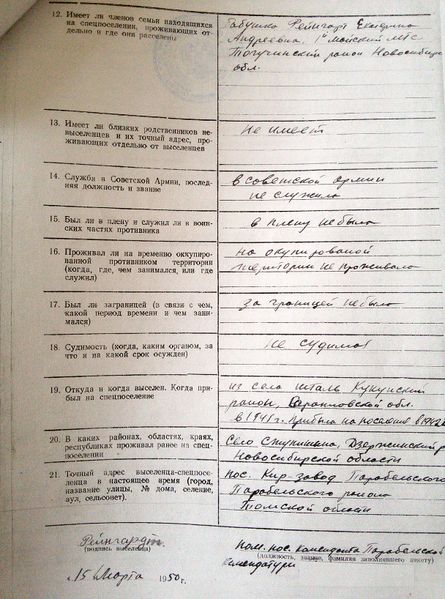 12. Имеет ли членов семьи находящихся
на спецпоселении, проживающих от-
дельно и где они расселены
Бабушка Рейнгардт Екатерина
Андреевна. 1й Майский МТС
Тогучинский район Новосибирс
обл.
13. Имеет ли близких родственников не-
выселенцев и их точный адрес, про-
живающих отдельно от выселенцев
не имеет
14. Служба в Советской Армии, послед-
няя должность и звание
в советской армии
не служила
15. Был ли в плену и служил ли в воин-
ских частях противника
в плену не была
16. Проживал ли на временно оккупиро-
ванной противником территории
(когда, где, чем занимался, или где
служил)
на окупированой
територии не проживала
17. Был ли заграницей (в связи с чем,
какой период времени и чем зани-
мался)
за границей не была
18. Судимость (когда, каким органом, за
что и на какой срок осужден)
не судима
19. Откуда и когда выселен. Когда при-
был на спецпоселение
из села Шталь Кукуский
район, Саратовской обл.
в 1941 г. Прибыла на поселение в
20. В каких районах, областях, краях,
республиках проживал ранее на спец-
поселении
Село Ступишина, Дзержинский р
Новосибирской области
21. Точный адрес выселенца-спецпосе-
ленца в настоящее время (город,
название улицы, № дома, селение,
аул, сельсовет).
пос. Кир-завод Парабельского
Парабельского района
Томской области
Рейнгардт
(подпись выселенца)
"15" Марта 1950 г.
Пом. пос. коменданта Парабельской
комендатуры
(должность, звание, фамилия заполнившего анкету)